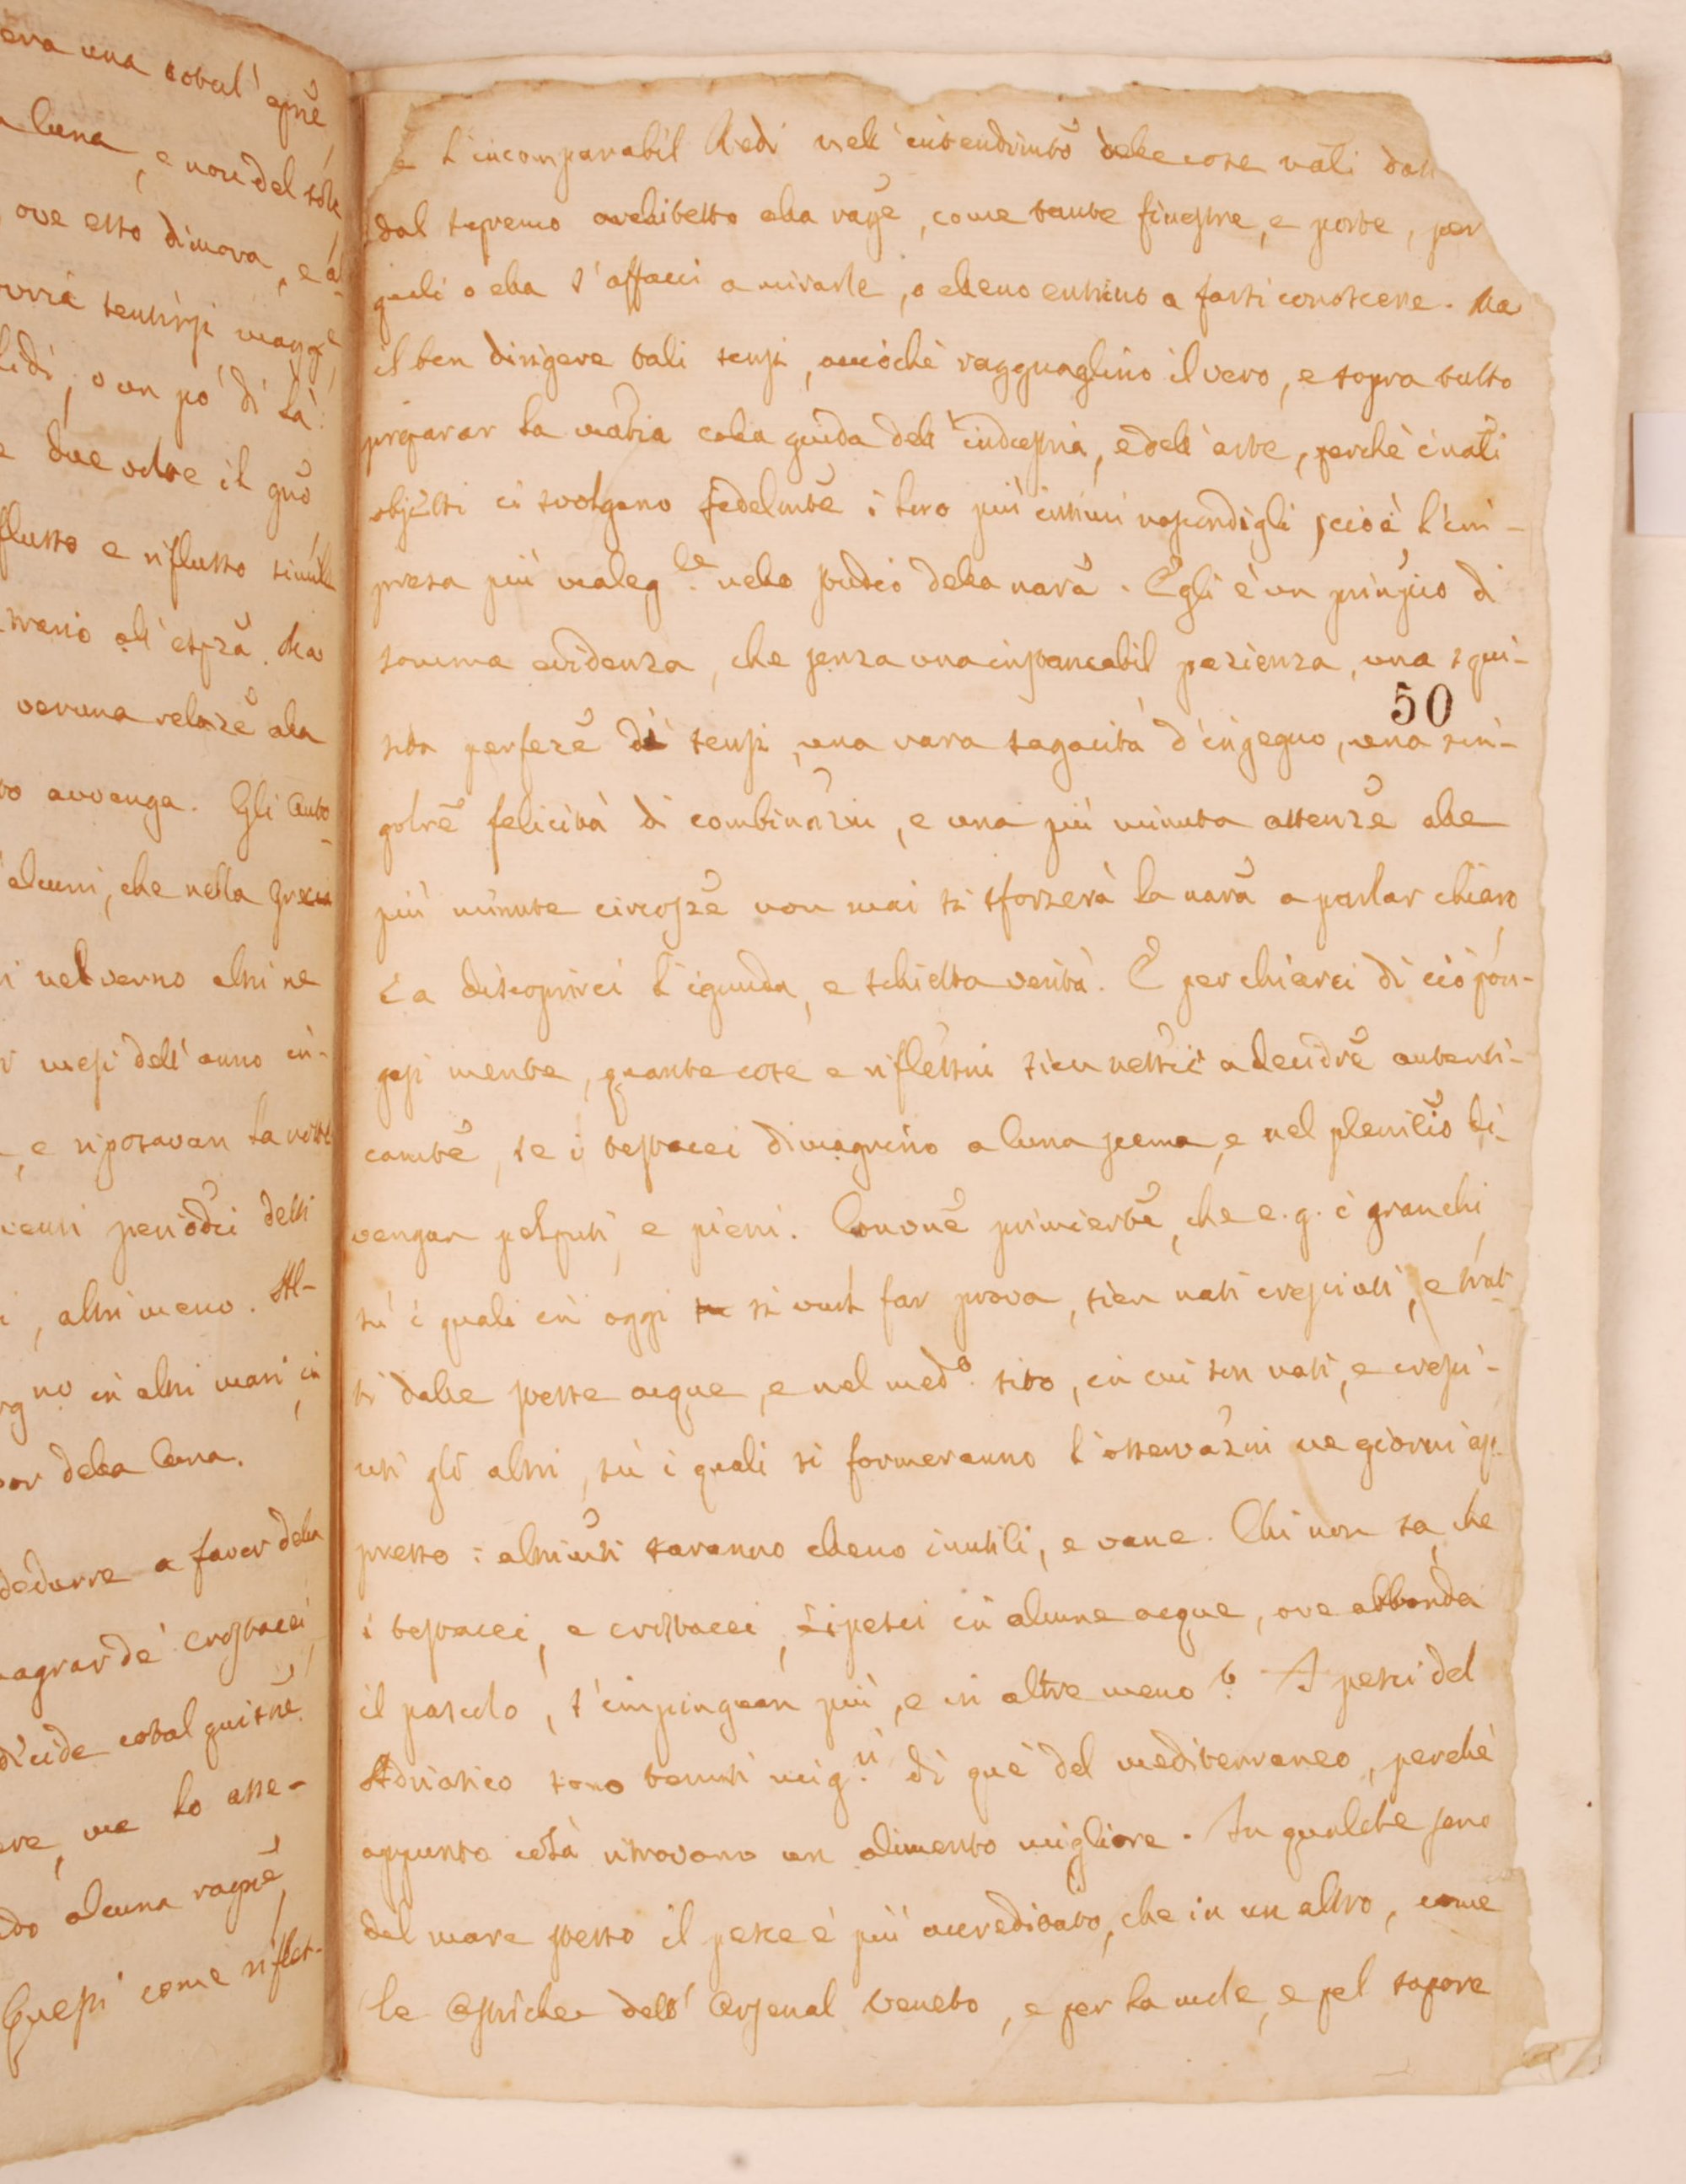 era una cotal'
luna, e non del sole
ove esso dimora, e
sentirsi
lidi, o un pò di là:
due volte il
flusso e riflusso simile
Ma
veruna relazẽ alla
avvenga. Gli Auto-
alcuni, che nella Grecia
nel verno altri ne
mesi dell'anno in-
, e riposavan la notte
periodici detti
, altri meno. Al-
in altri mari in
della luna.
dedurre a favor della
de' Crostacei
decide cotal
ma lo asse-
alcuna ragñe
Questi come riflet-
e l'incomparabil Redi nell'intendimtõ delle cose nãli dati
dal supremo architetto alla ragẽ, come tante finestre, e porte, per
quali o ella s'affacci a mirarle, o elleno entrino a farsi conoscere. Ma
il ben dirigere tali sensi, acciochè ragguaglino il vero, e sopra tutto
preparar la matĩa colla guida dell'industria, e dell'arte, perchè i nãli
objetti ci svolgano fedelmtẽ i loro più intimi nascondigli, ciò è l'im-
presa più maleg.le nello studio della narã. Egli è un prinpio di
somma evidenza, che senza una instancabil pazienza, una squi-
50
sita perfezẽ di sensi, una rara sagacità d'ingegno, una sin-
golrẽ felicità di combinazni, e una più minuta attenzẽ alle
più minute circostzẽ non mai si sforzerà la narã a parlar chiaro,
e a discoprirci l'ignuda, e schietta verità. E per chiarci di ciò pon-
gasi mente, quante cose e riflessni sien nessrie a decidrẽ autenti-
camtẽ, se i testacei dimagrino a luna scema, e nel pleniliõ di-
vengan polputi, e pieni. Convnẽ primiertẽ, che e.g. i granchi,
sù i quali in oggi si vuol far prova, sien nati cresciuti, e trat-
ti dalle stesse acque, e nel med.o sito, in cui son nati, e cresci-
uti gli altri, sù i quali si formeranno l'osservazni ne giorni ap-
presso: altrimti saranno elleno inutili, e vane. Chi non sa, che
i testacei, e crostacei, e i pesci in alcune acque, ove abbonda
il pascolo, s'impinguan più, e in altre meno? I pesci del
Adriatico sono tenuti mig.ri di què del mediterraneo, perchè
appunto colà ritrovano un alimento migliore. In qualche seno
del mare stesso il pesce è più accreditato, che in un altro, come
le Ostriche dell'Arsenal Veneto, e per la mole, e pel sapore